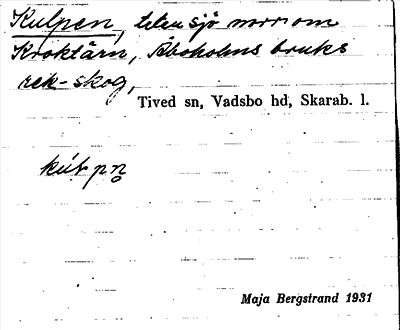 Kulpen, liten sjö norr om
Kroktärn, Åboholms bruks
rek-skog,
Tived sn, Vadsbo hd, Skarab. l.
Maja Bergstrand 1931